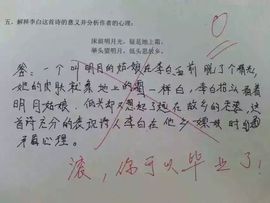 五、解释李白这首诗的意义并分析作者的心理:
床前明月光,疑是地上霜,
举头望明月,低头思故乡。
答:一个叫明月的姑娘在李白面前脱了个精光,
她的皮肤松象地上的霜一样白,李白抬头看着
明月姑娘,低头却又想起了远在故乡的老婆,这
首诗充分的表现诗人李白在他乡嫖娼时的
矛盾心理。
滚,你可以毕业了!